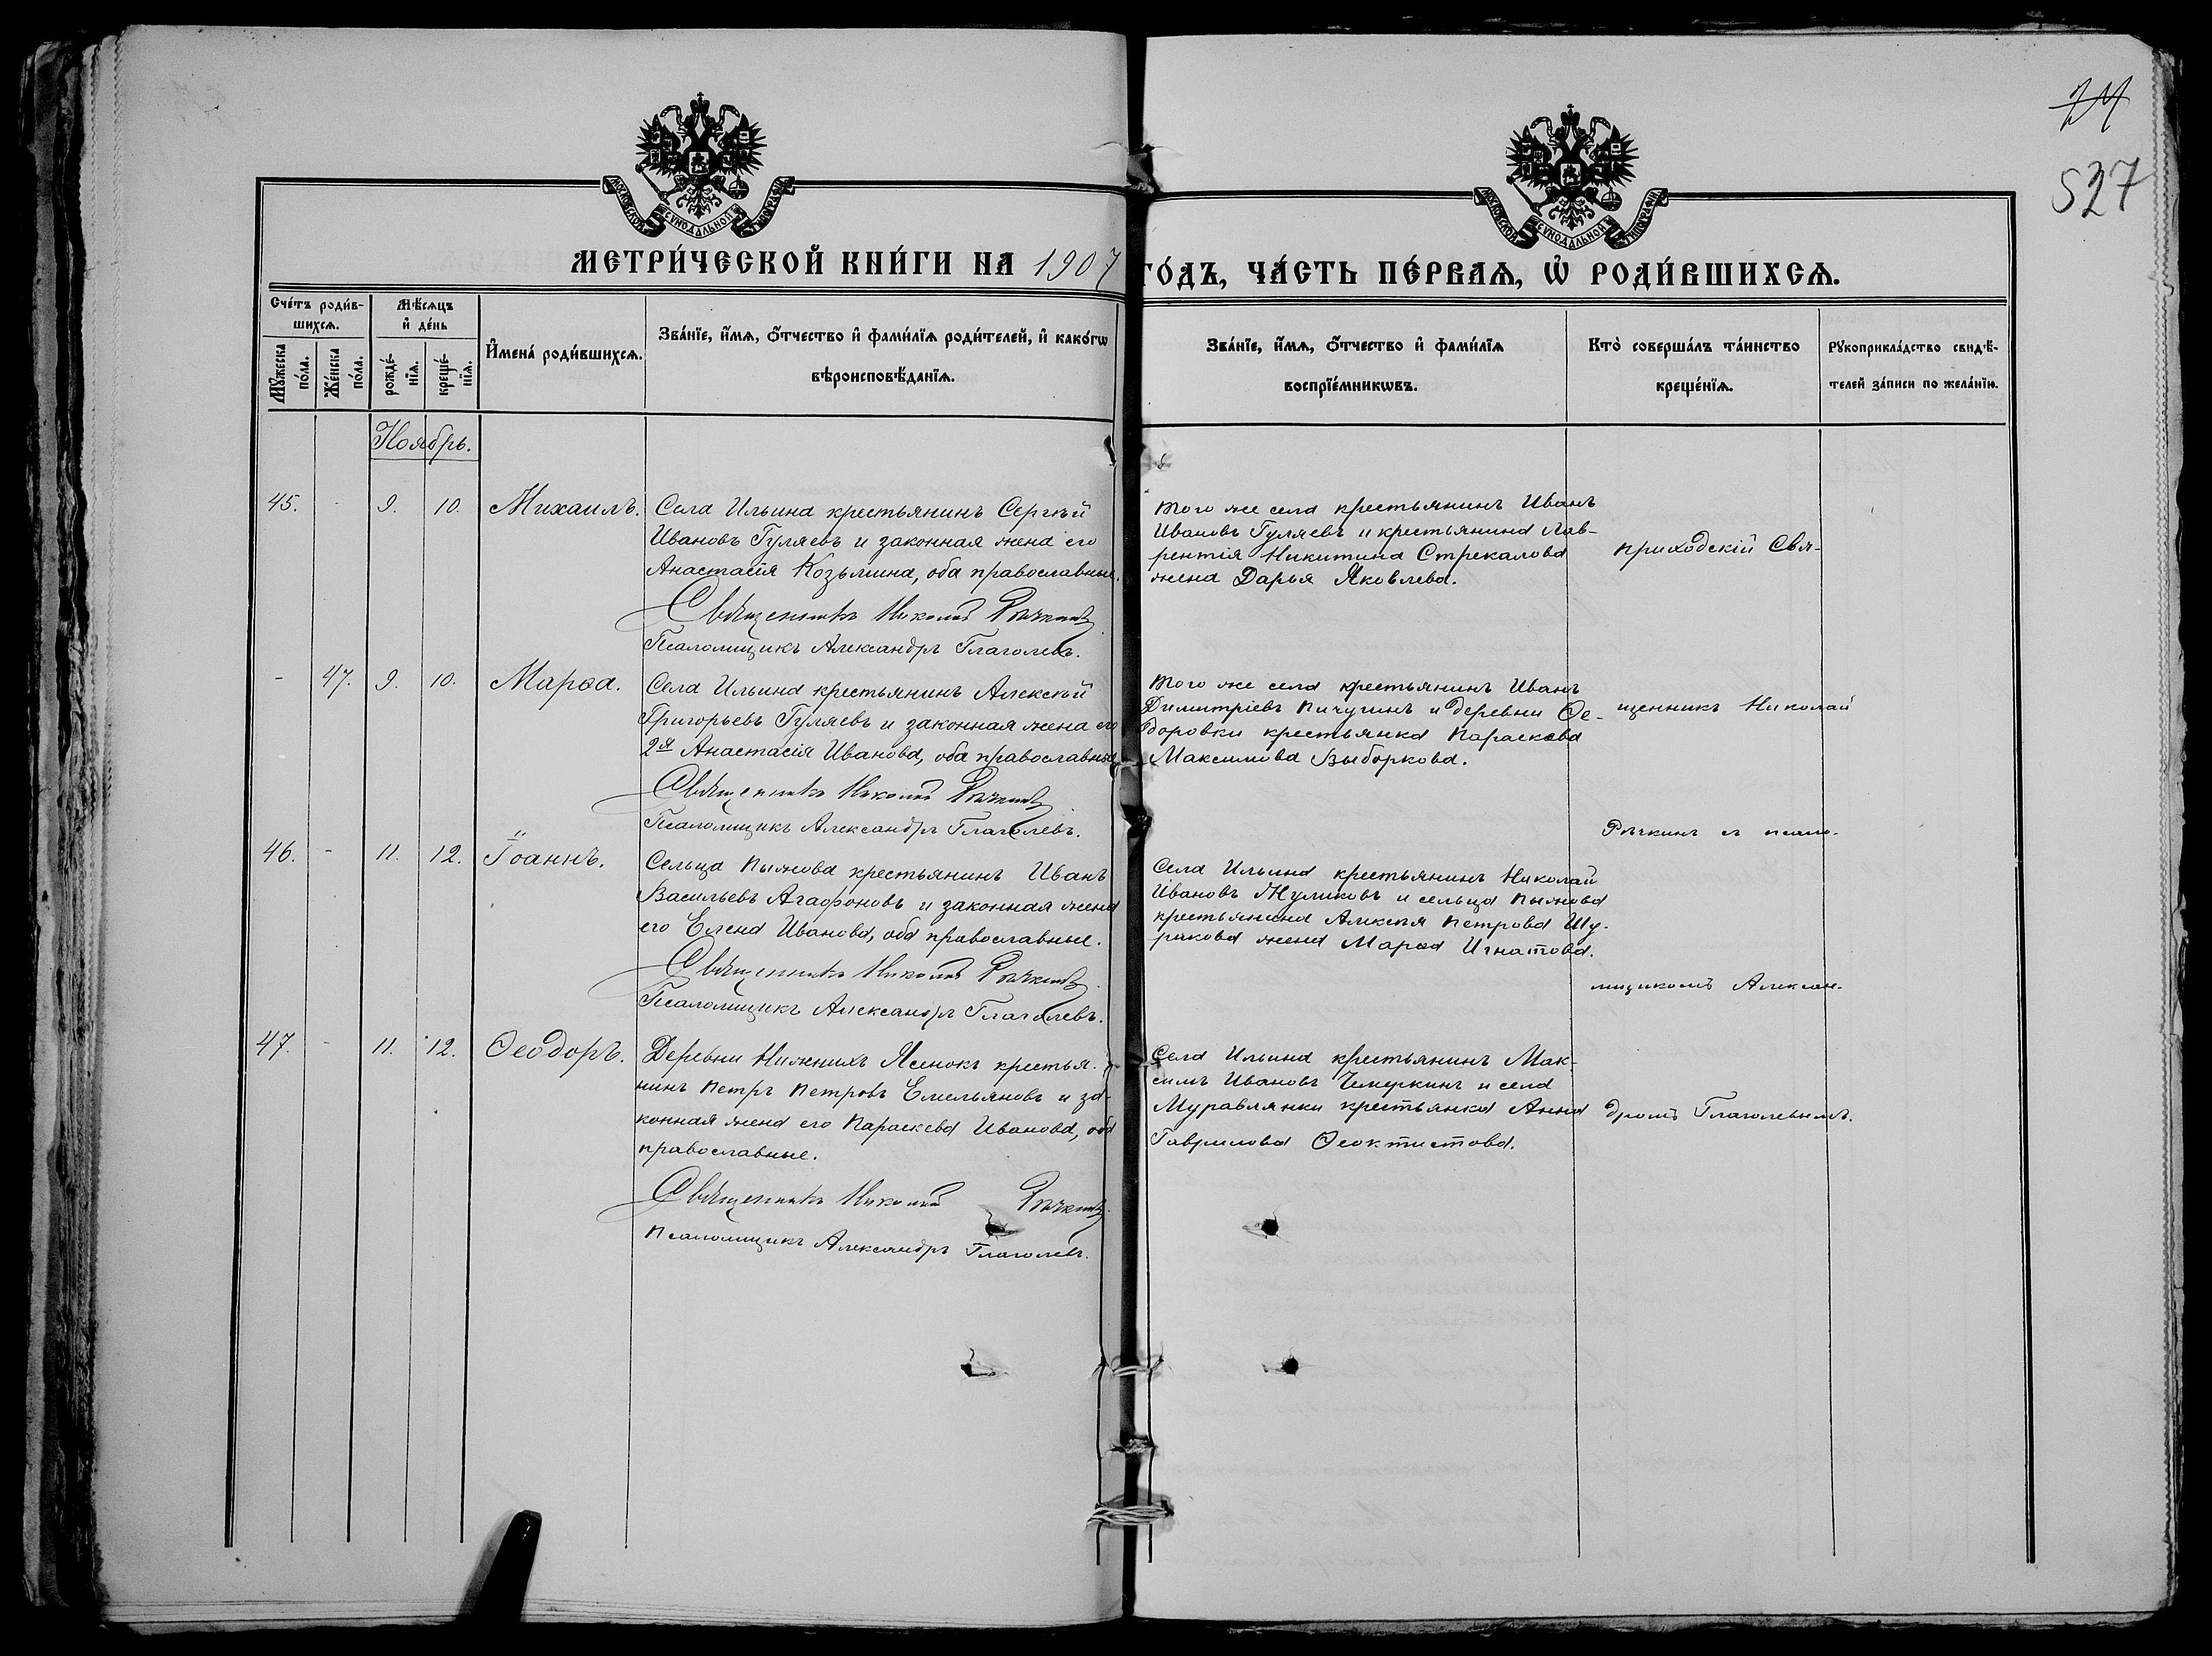 527
МОСКОВСКОЙ СѴНОДАЛЬНОЙ ТИПОГРАФІИ
МОСКОВСКОЙ СѴНОДАЛЬНОЙ ТИПОГРАФІИ
МЕТРИ́ЧЕСКОЙ КНИ́ГИ НА 1907 ГО́ДЪ, ЧА́СТЬ ПЕ́РВАѦ, Ѽ РОДИ́ВШИХСѦ.
Сче́тъ роди́в-
шихсѧ.
Мꙋ́жеска по́ла.
Же́нска по́ла.
Мѣ́сѧцъ
и҆ де́нь
рожде́-
нїѧ.
креще́-
нїѧ.
И҆мена̀ роди́вшихсѧ.
Зва́нїе, и҆́мѧ, ѻ҆́тчество и҆ фами́лїѧ роди́телей, и҆ како́гѡ
вѣроисповѣ́данїѧ.
Зва́нїе, и҆́мѧ, ѻ҆́тчество и҆ фами́лїѧ
воспрїе́мникѡвъ.
Кто̀ соверша́лъ та́инство
креще́нїѧ.
Рꙋкоприкла́дство свидѣ́-
телей за́писи по жела́нїю.
Ноябрь.
45. - 9. 10. Михаилъ.
Села Ильина крестьянинъ Сергѣй
Ивановъ Гуляевъ и законная жена его
Анастасія Козьмина, оба православные.
Священникъ Николай Рѣчкинъ
Псаломщикъ Александръ Глаголевъ.
того же села крестьянинъ Иванъ
Ивановъ Гуляевъ и крестьянина Лав-
рентія Никитина Стрекалова
жена Дарья Яковлева.
приходскій Свя-
- 47. 9. 10. Марѳа.
Села Ильина крестьянинъ Алексѣй
Григорьевъ Гуляевъ и законная жена его
2я Анастасія Иванова, оба православные
Священникъ Николай Рѣчкинъ
Псаломщикъ Александръ Глаголевъ.
того же села крестьянинъ Иванъ
Димитріевъ Пичугинъ и деревни Ѳе-
доровки крестьянка Параскева
Максимова Выборкова.
щенникъ Николай
46. - 11. 12. Іоаннъ.
Сельца Пыжова крестьянинъ Иванъ
Васильевъ Агаѳоновъ и законная жена
его Елена Иванова, оба православные.
Священникъ Николай Рѣчкинъ
Псаломщикъ Александръ Глаголевъ.
Села Ильина крестьянинъ Николай
Ивановъ Жуликовъ и сельца Пыжова
крестьянина Алексѣя Петрова Шу-
ракова жена Марѳа Игнатова.
Рѣчкинъ съ псало-
мщикомъ Алексан-
47. - 11. 12. Ѳеодоръ.
Деревни Нижнихъ Ясенокъ крестья-
нинъ Петръ Петровъ Емельяновъ и за-
конная жена его Параскева Иванова, оба
православные.
Священникъ Николай Рѣчкинъ
Псаломщикъ Александръ Глаголевъ.
Села Ильина крестьянинъ Мак-
симъ Ивановъ Чемеркинъ и села
Муравлянки крестьянка Анна
Гаврилова Ѳеоктистова.
дромъ Глаголевымъ.